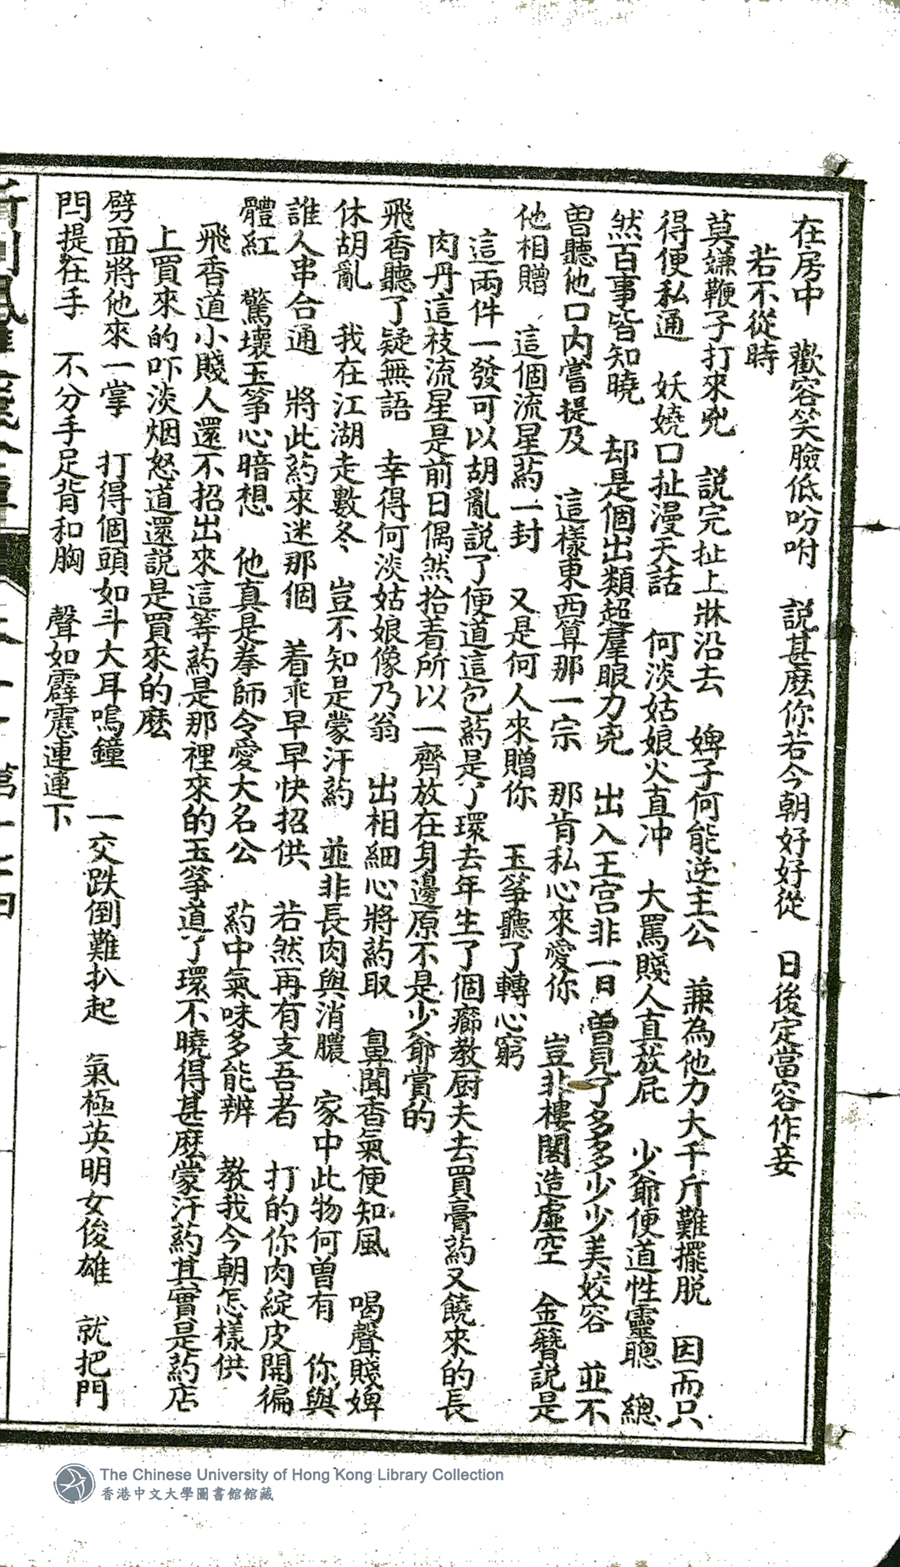 在房中　歡容笑臉低吩咐　説甚麽你若今朝好好從　日後定當容作妾
若不從時
莫嫌鞭子打來兇　説完扯上牀沿去　婢子何能逆主公　兼為他力大千斤難擺脱　因而只
得便私通　妖嬈口扯漫天話　何淡姑娘火直冲　大罵賤人真放屁　少爺便道性靈聰　總
然百事皆知曉　却是個出類超羣眼力兇　出入王宮非一日　曽見了多多少少美姣容　並不
曽聽他口内嘗提及　這樣東西算那一宗　那肯私心來愛你　豈非樓閣造虛空　金簪說是
他相贈　這個流星葯一封　又是何人來贈你　玉筝聽了轉心窮
這兩件一發可以胡亂説了便道這包葯是了環去年生了個癤教厨夫去買膏葯又饒來的長
肉丹這枝流星是前日偶然拾着所以一齊放在身邊原不是少爺賞的
飛香聽了疑無語　幸得何淡姑娘像乃翁　出相細心將葯取　鼻聞香氣便知風　喝聲賤婢
休胡亂　我在江湖走數冬　豈不知是蒙汗葯　並非長肉與消膿　家中此物何曽有　你與
誰人串合通　將此葯來迷那個　着乖早早快招供　若然再有支吾者　打的你肉綻皮開徧
體紅　驚壞玉筝心暗想　他真是拳師令愛大名公　葯中氣味多能辨　教我今朝怎樣供
飛香道小賤人還不招出來這等葯是那裡來的玉筝道了環不曉得甚麽蒙汗葯其實是葯店
上買來的吓淡烟怒道還説是買來的麽
劈面將他來一掌　打得個頭如斗大耳鳴鐘　一交跌倒難扒起　氣極英明女俊雄　就把門
閂提在手　不分手足背和胸　聲如霹靂連連下
The Chinese University of Hong Kong Library Collection
香港中文大學圖書館館藏